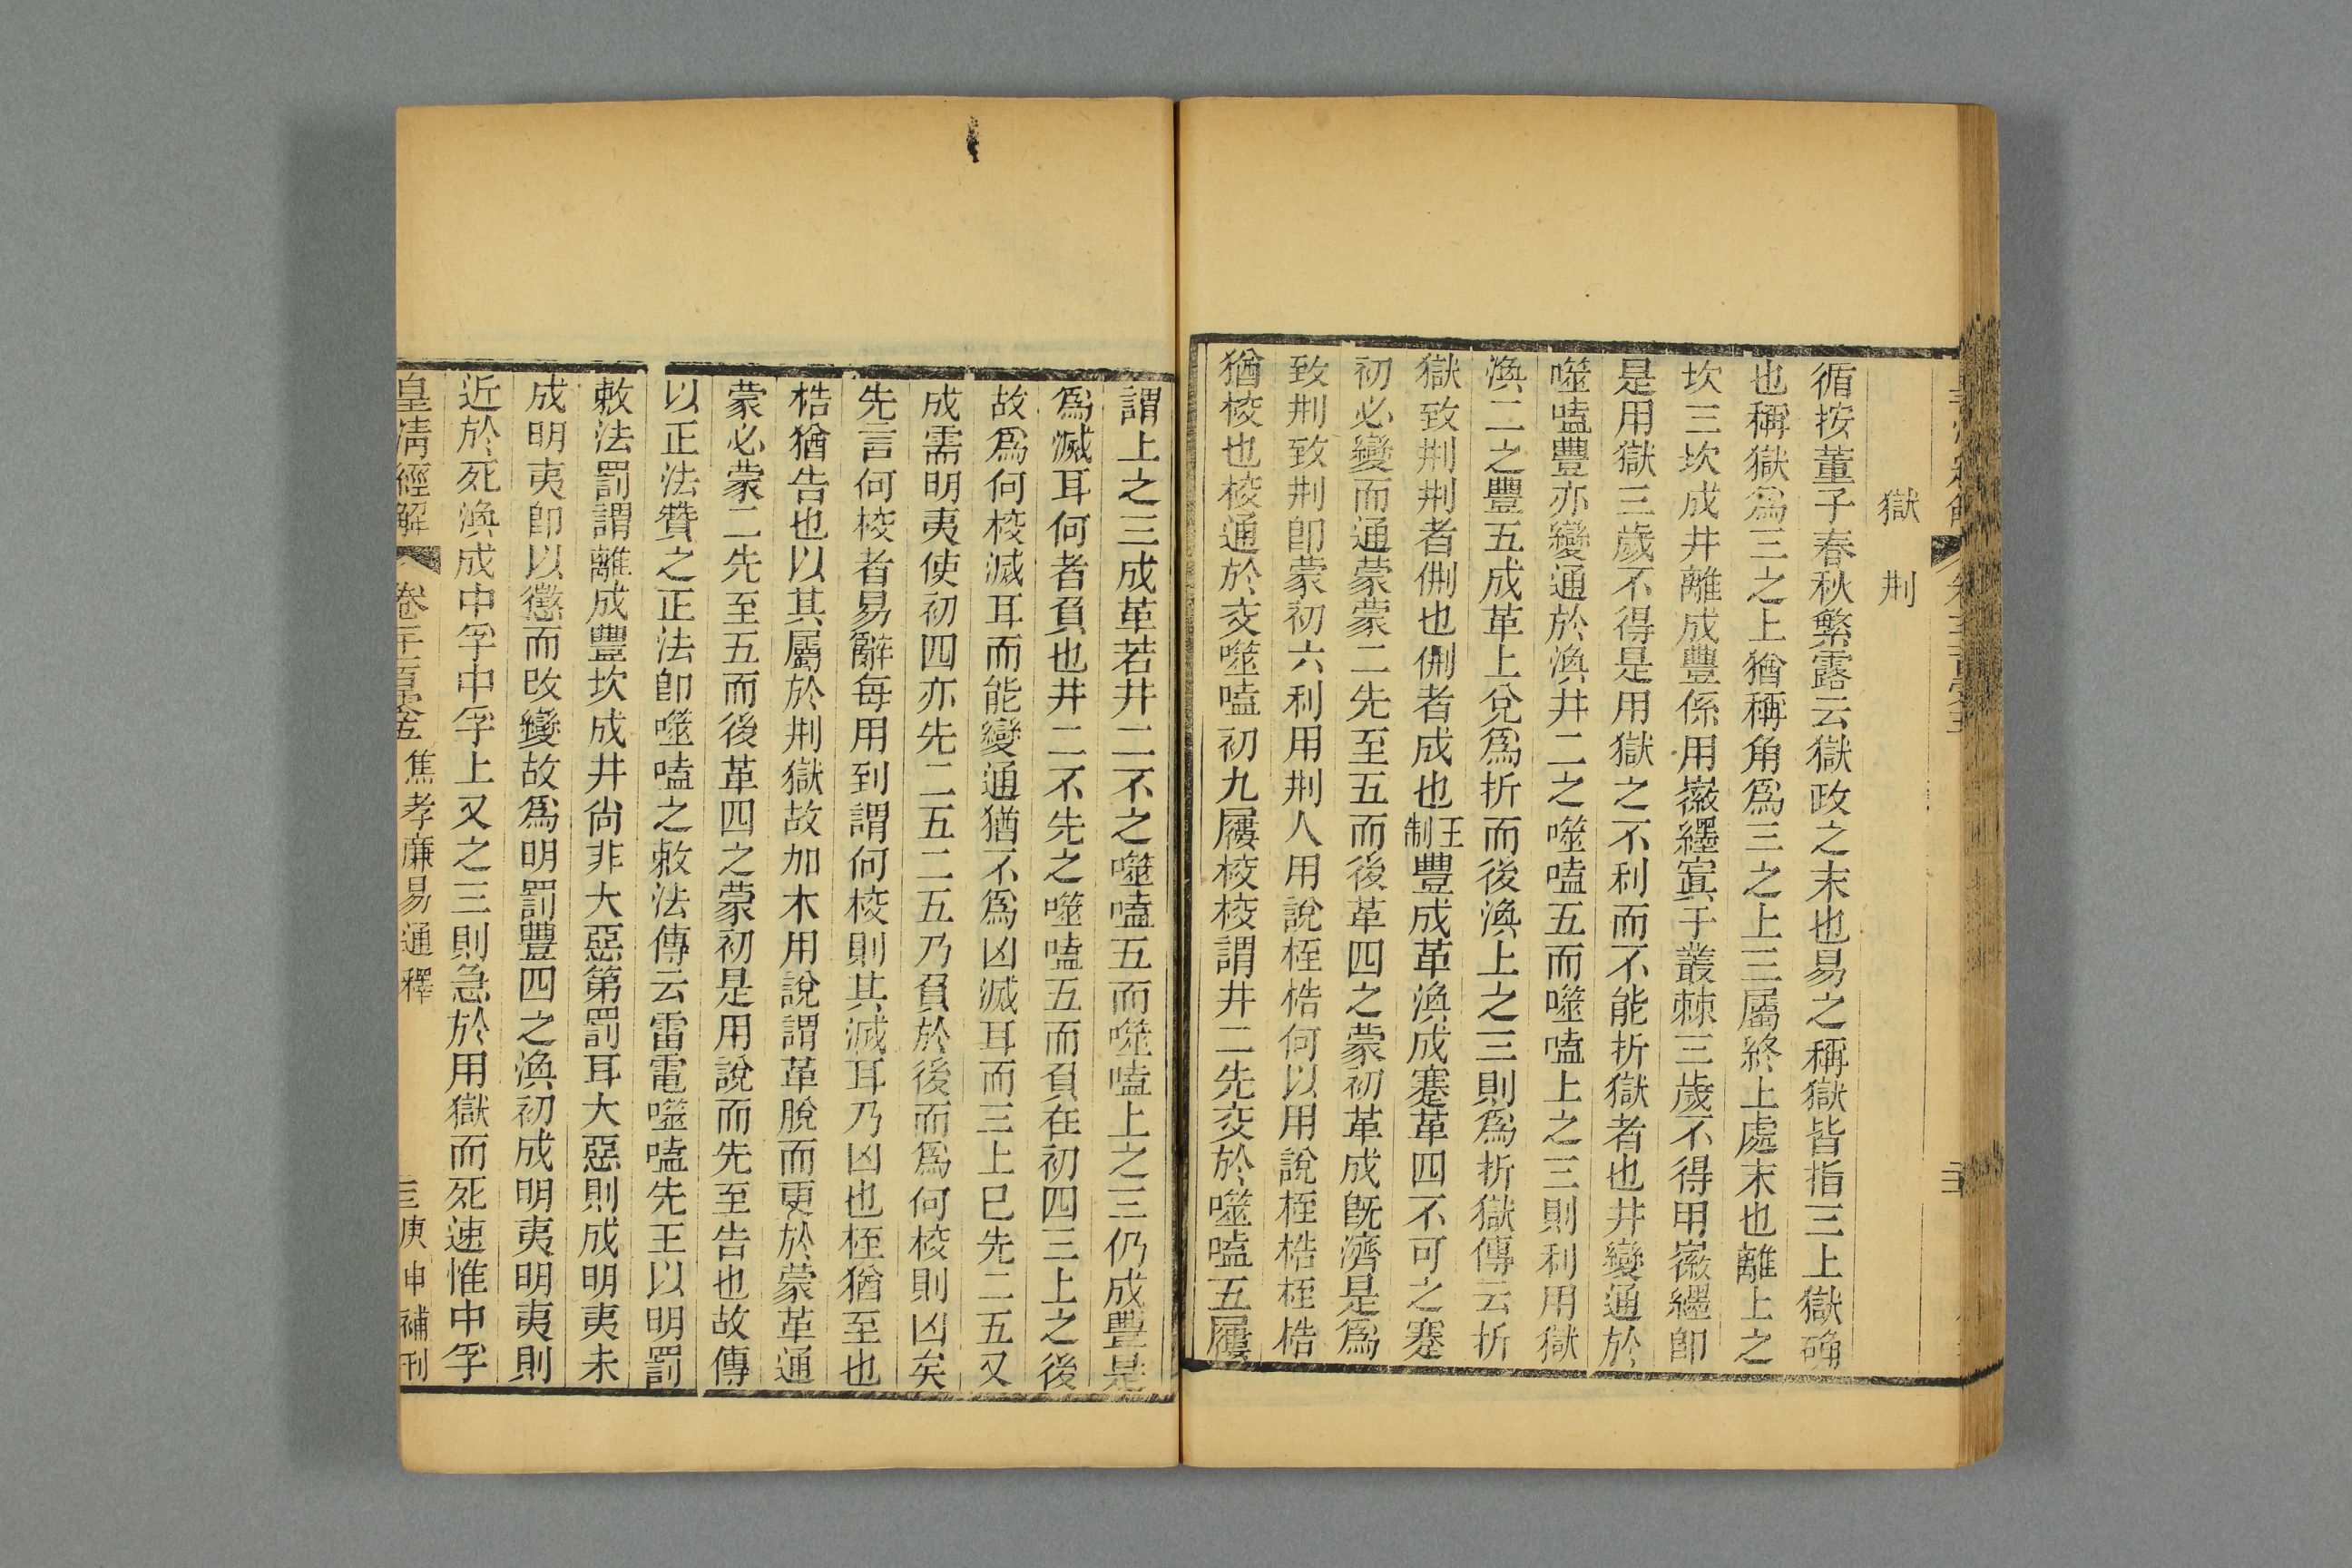 獄 𠛬
循按董子春秋繁露云獄政之末也易之稱獄皆指三上獄确
也稱獄爲三之上猶稱角爲三之上三屬終上處末也離上之
坎三坎成井離成豐係用徽纆寘于叢棘三歲不得用徽纆卽
是用獄三歲不得是用獄之不利而不能折獄者也井變通於
噬嗑豐亦變通於渙井二之噬嗑五而噬嗑上之三則利用獄
渙二之豐五成革上兌爲折而後渙上之三則爲折獄傳云折
獄致𠛬𠛬者侀也侀者成也王制豐成革渙成蹇革四不可之蹇
初必變而通蒙蒙二先至五而後革四之蒙初革成旣濟是爲
致𠛬致𠛬卽蒙初六利用𠛬人用說桎梏何以用說桎梏桎梏
猶校也校通於交噬嗑初九屨校校謂井二先交於噬嗑五屨
謂上之三成革若井二不之噬嗑五而噬嗑上之三仍成豐是
爲滅耳何者負也井二不先之噬嗑五而負在初四三上之後
故爲何校滅耳而能變通猶不爲凶滅耳而三上巳先二五又
成需明夷使初四亦先二五二五乃負於後而爲何校則凶矣
先言何校者易辭每用到謂何校則其滅耳乃凶也桎猶至也
梏猶告也以其屬於𠛬獄故加木用說謂革脫而更於蒙革通
蒙必蒙二先至五而後革四之蒙初是用說而先至告也故傳
以正法贊之正法卽噬嗑之敕法傳云雷電噬嗑先王以明罰
敕法罰謂離成豐坎成井尙非大惡第罰耳大惡則成明夷未
成明夷卽以懲而改變故爲明罰豐四之渙初成明夷明夷則
近於死渙成中孚中孚上又之三則急於用獄而死速惟中孚
皇淸經解 卷一千一百 焦孝廉易通釋 庚申補刊